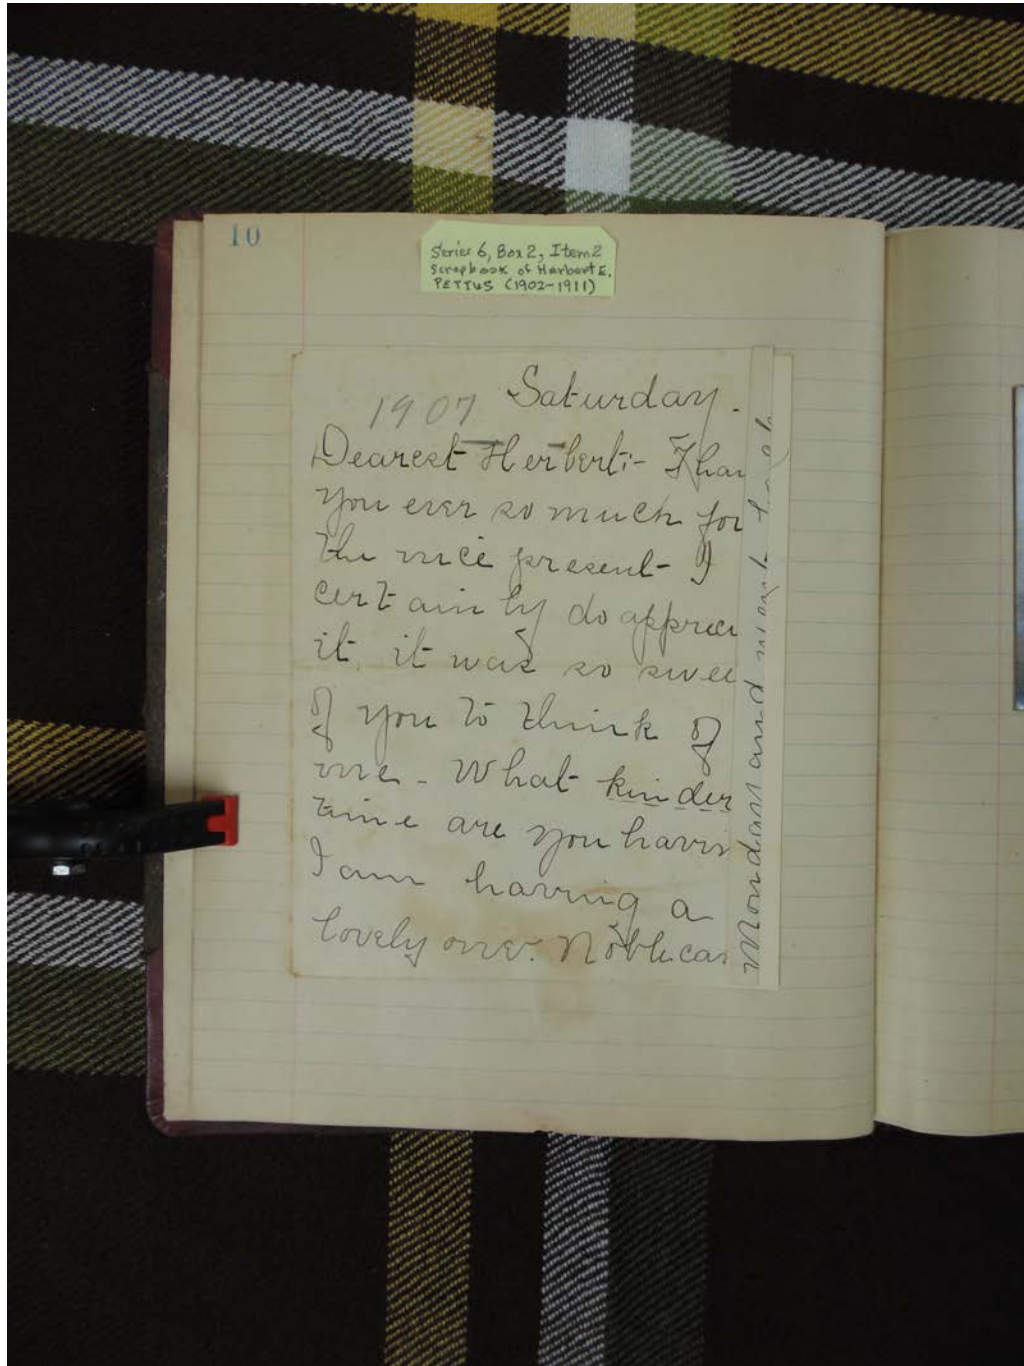 10
Series 6, Box 2, Item 2
Scrapbook of Herbert E.
PETTUS (1902-1911)
Saturday.
1907
Dearest Herbert:- Than
you ever so much for
the nice present- I
certainly do apprec
it, it was so swee
of you to think of
me- What kinder
time are you havin
I am having a
lovely one. Noble can
Monday and must